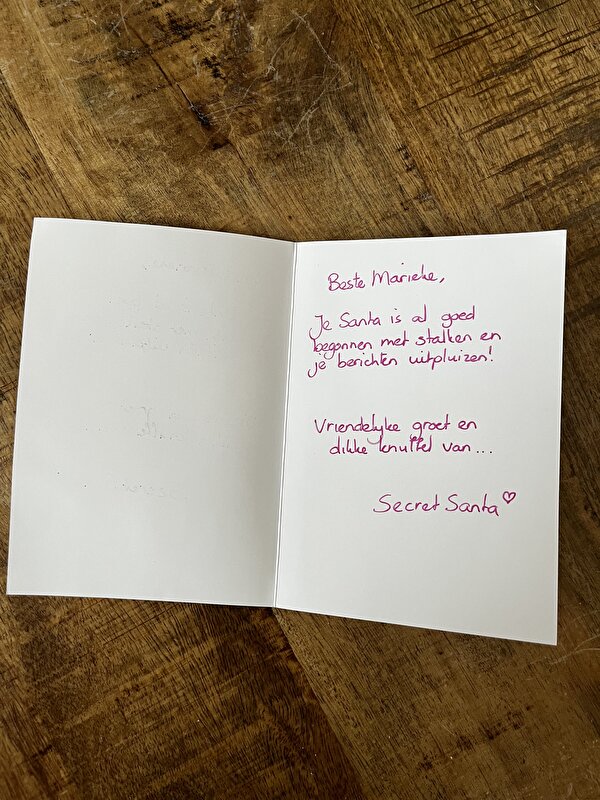 Beste Marieke,
Je Santa is al goed
begonnen met stalken en
je berichten uitpluizen!
Vriendelyke groet en
dikke knuffel van...
Secret Santa♡